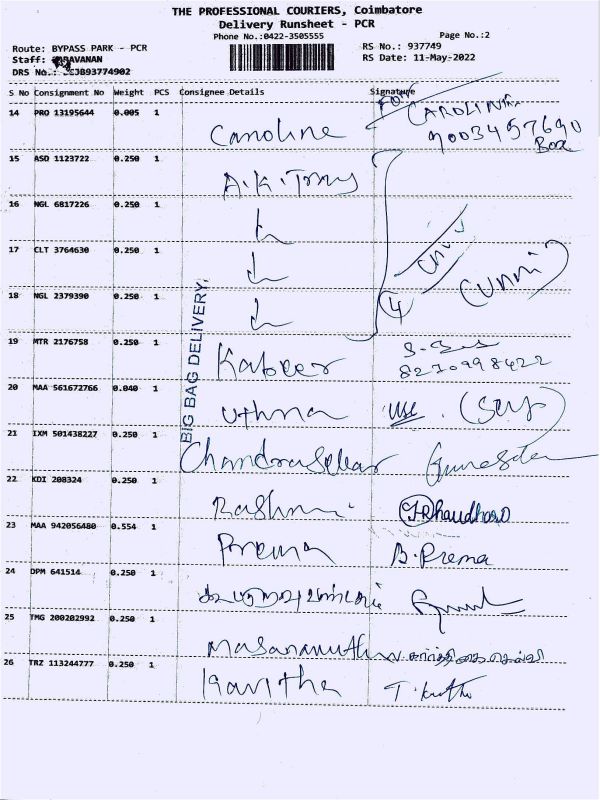 THE PROFESSIONAL COURIERS, Coimbatore
Delivery Runsheet - PCR
Phone No.:0422-3505555 Page No.:2
Route: BYPASS PARK - PCR RS No.: 937749
Staff: RS Date: 11-May-2022
DRS No.:
S No Consignment No Weight PCS Consignee Details Signature
14 PRO 13195644 0.005 1 Caroline For CAROLINE
9003457690
Box
15 ASD 1123722 0.250 1
16 NGL 6817226 0.250 1
17 CLT 3764630 0.250 1
18 NGL 2379390 0.250 1 4 (Unni)
BIG BAG DELIVERY,
19 MTR 2176758 0.250 1 Kabeer
8270998422
20 MAA 561672766 0.040 1 Uthna
21 IXM 501438227 0.250 1 Chandrasekar
22 KDI 208324 0.250 1 Rashmi
23 MAA 942056480 0.554 1 Prema B. Prema
24 DPM 641514 0.250 1
25 TMG 200202992 0.250 1 Masanamuthu
26 TRZ 113244777 0.250 1 Kavitha